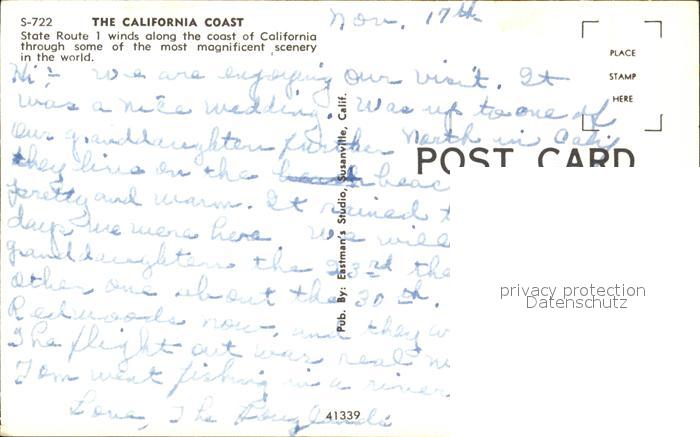 S-722 THE CALIFORNIA COAST
State Route 1 winds along the coast of California
through some of the most magnificent scenery
in the world.
Nov. 17th
PLACE
STAMP
HERE
Hi - We are enjoying our visit. It
was a nice wedding. Was up to one of
our granddaughters further North in Calif
they live on the beac
pretty and warm. It rained
days we were here We will
granddaughters the 23rd the
other one about the 30th.
Redwoods now and they
The flight out was real
Tom went fishing in a river
Love, The Douglands
POST CARD
Pub. By: Eastman's Studio, Susanville, Calif.
41339
privacy protection
Datenschutz